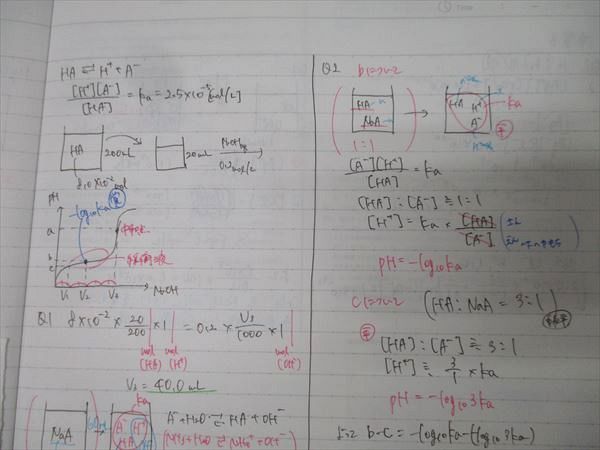 HA ⇌ H⁺ + A⁻
[H⁺][A⁻] / [HA] = Ka = 2.5×10⁻⁵ mol/L
HA
200mL
20mL
NaOHaq
0.2mol/L
8.0×10⁻² mol
pH
-log₁₀Ka
a
b
c
V₁ V₂ V₃
NaOH
Q1 8×10⁻² × 20/200 × 1 = 0.2 × V₃/1000 × 1
mol (HA)
mol (H⁺)
mol (OH⁻)
V₃ = 40.0mL
NaA
Ka
A⁻ H⁺
HA
A⁻+H₂O ⇌ HA+OH⁻
(NH₃+H₂O ⇌ NH₄⁺+OH⁻)
Q2 bについて
HA
NaA
1:1
HA H⁺
A⁻
Ka
[A⁻][H⁺] / [HA] = Ka
[HA] : [A⁻] ≒ 1:1
[H⁺] = Ka × [HA] / [A⁻]
pH = -log₁₀Ka
cについて (HA : NaA = 3:1)
[HA] : [A⁻] ≒ 3:1
[H⁺] ≒ 3/1 × Ka
pH = -log₁₀3Ka
よって b-c = -log₁₀Ka-(-log₁₀3Ka)